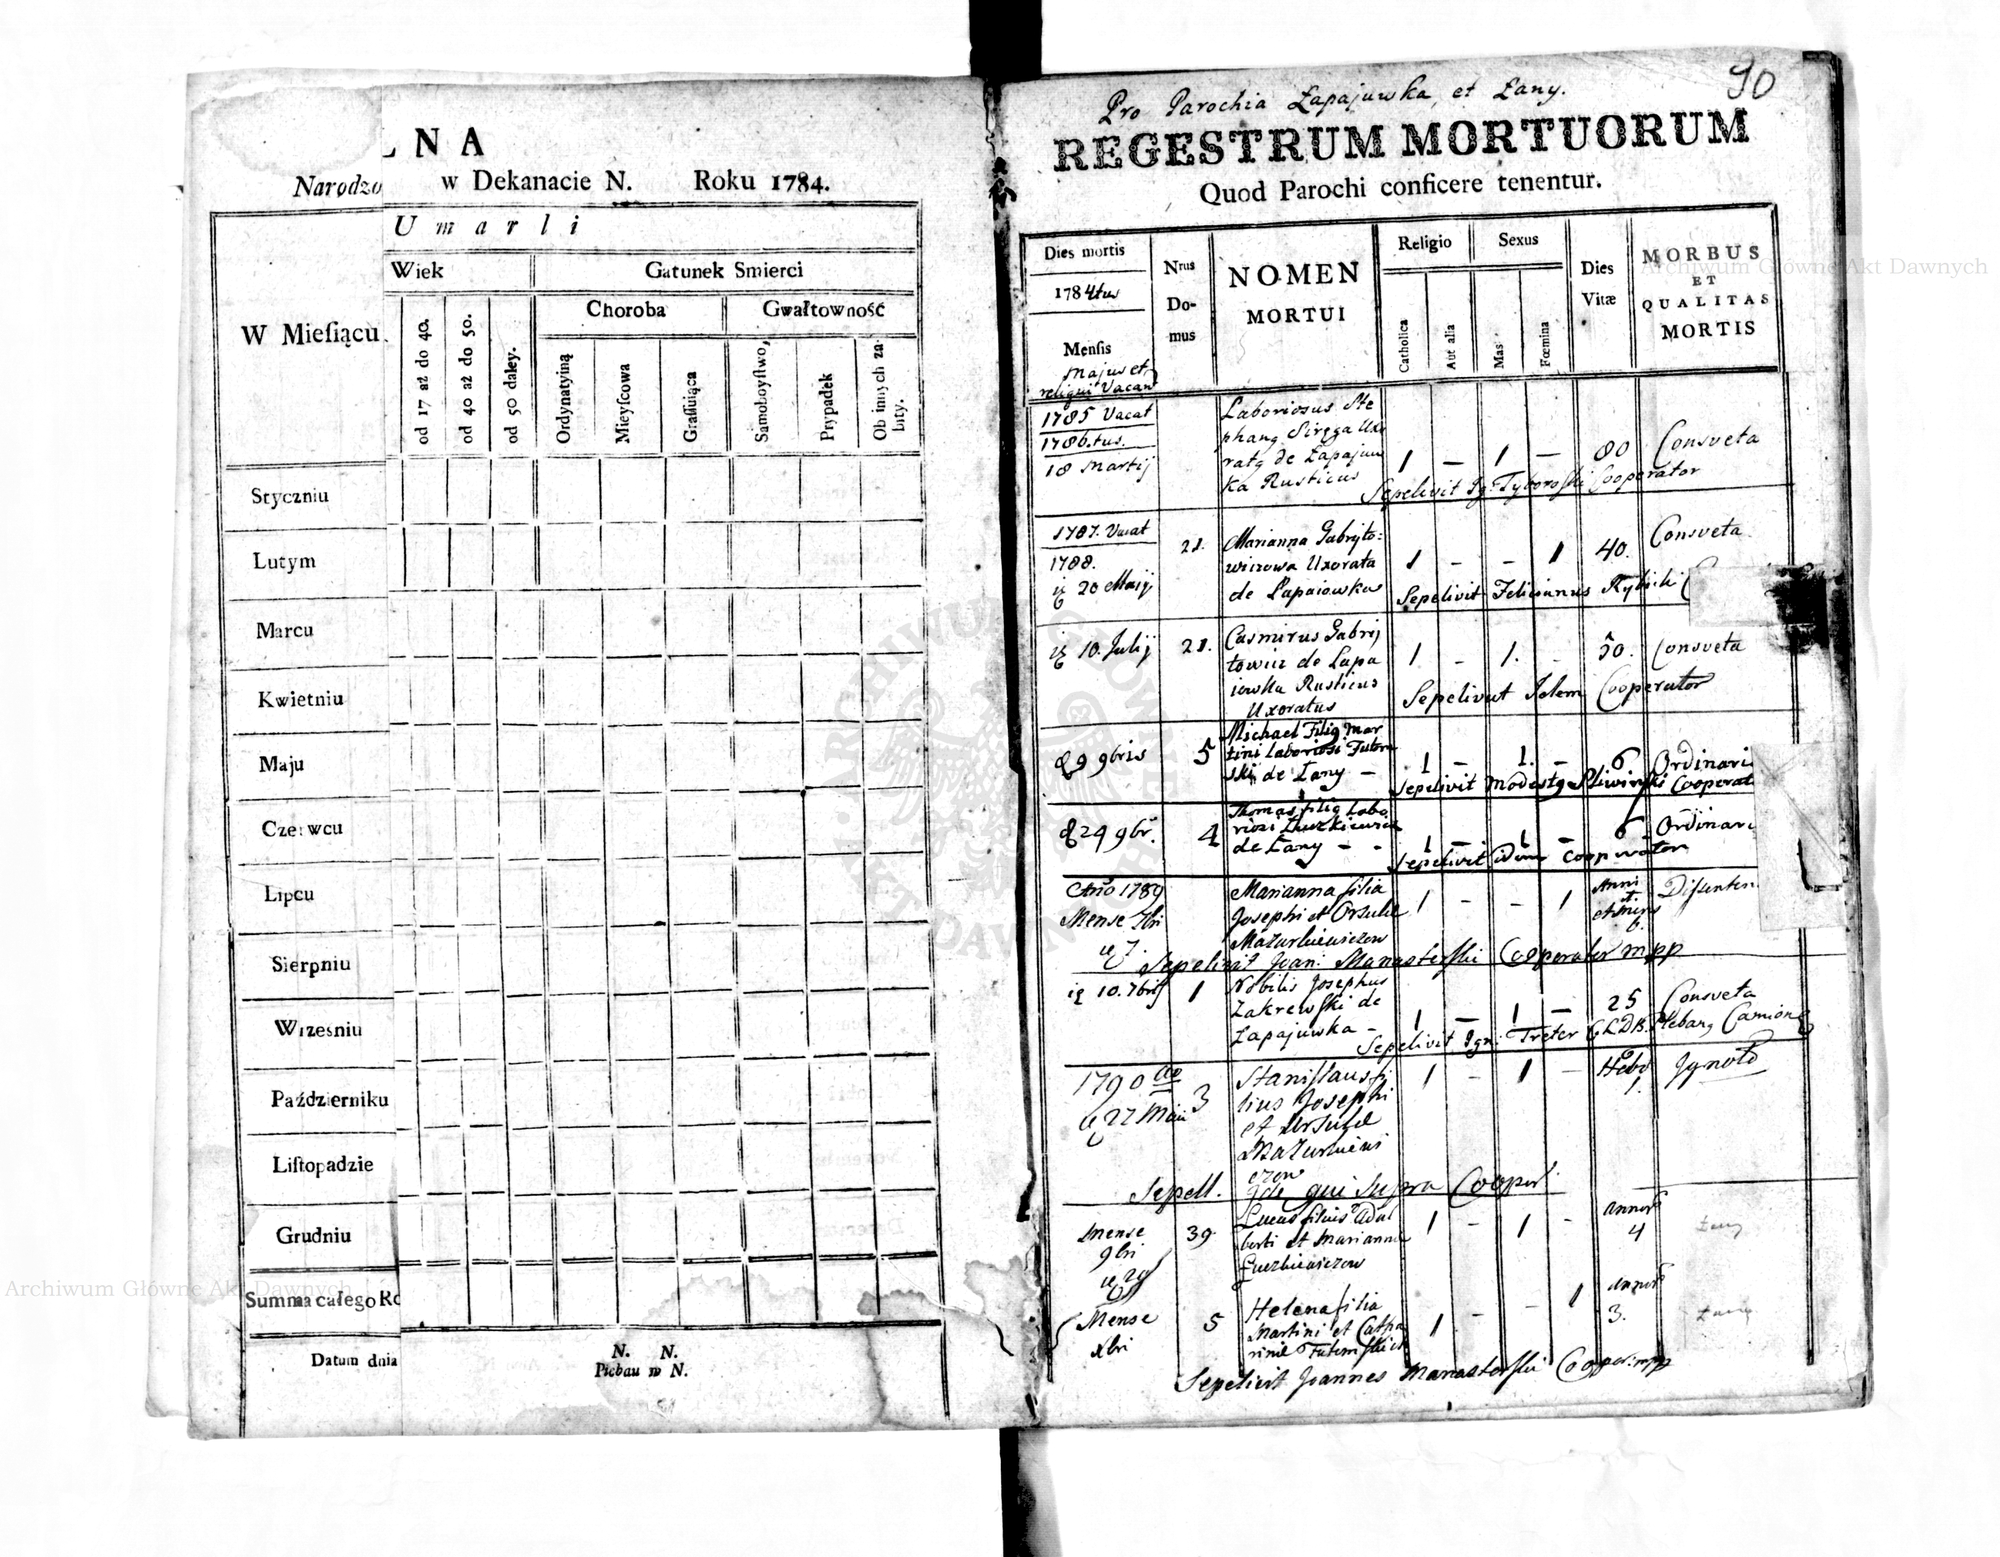 LNA
Narodzo w Dekanacie N. Roku 1784.
Umarli
Wiek
Gatunek Smierci
Choroba
Gwałtowność
W Mieſiącu
od 17 aż do 40.
od 40 aż do 50.
od 50 daley.
Ordynaryiną
Mieyſcowa
Graſſuiąca
Samoboyſtwo,
Przypadek
Ob innych za-
bity.
Styczniu
Lutym
Marcu
Kwietniu
Maju
Czerwcu
Lipcu
Sierpniu
Wrześniu
Październiku
Liſtopadzie
Grudniu
Summa całego Ro
Datum dnia
N. N.
Pleban w N.
90
Pro Parochia Łapajuwka et Łany.
REGESTRUM MORTUORUM
Quod Parochi conficere tenentur.
Dies mortis
1784tus
Menſis
Majus et
reliqui Vacant
Nrus
Do-
mus
NOMEN
MORTUI
Religio
Catholica
Aut alia
Sexus
Mas
Fœmina
Dies
Vitæ
MORBUS
ET
QUALITAS
MORTIS
1785 Vacat
1786.tus.
18 Martij
Laboriosus Ste
phang Siręga Uxo
ratg de Łapajuw
ka Rusticus
1 — 1 — 80 Consveta
Sepelivit Ig: Tyboroſki Cooperator
1787. Vacat
1788.
20 Maij
21.
Marianna Gabryto:
wiczowa Uxorata
de Łapaiowka
1 - - 1 40. Consveta
Sepelivit Felicianus Rybicki
10. Julij 21.
Casmirus Gabrij
towicz de Łapa
iowka Rusticus
Uxoratus
1 - 1. - 50. Consveta
Sepelivit Idem Cooperator
29 9bris 5
Michael Filig Mar
tini Laboriosi Futom
ski de Łany —
1 — 1. — 6 Ordinari
Sepelivit Modestg Sliwinſki Cooperat
24 9br. 4
Thomas filig Labo
riosi Łuzkiewicz
de Łany — -
1 — 1 — 6 Ordinari
Sepelivit idem Cooperator
Año 1789
Mense 7bri
7.
Marianna filia
Josephi et Orsulæ
Mazurkiewiczow
1 - - 1 Anni
Diſsenten
Sepelivit Joan: Manasterſki Cooperator mpp
10. 7bris 1
Nobilis Josephus
Zakrewſki de
Łapajuwka —
1 — 1 — 25 Consveta
Sepelivit Ign: Treter Plebang Camion
1790
22 Maii 3
Staniſlaus fi
lius Josephi
et Ursulæ
Mazurkiewi
czow
1 - 1 — Hebd 1. Ignota
Sepell. Ide qui Supra Cooper.
Mense
9bri
29
39.
Lucas filius Adal
berti et Marianna
Łuczkiewiczow
1 - 1 - annor 4
Łany
Mense
Xbri
5
Helena filia
Martini et Catha
rinæ Futomſkich
1 - - 1 annor
3.
Łany
Sepelivit Joannes Manasterſki Cooper: mpp
Archiwum Główne Akt Dawnych
Archiwum Główne Akt Dawnych
ARCHIWUM GŁÓWNE AKT DAWNYCH